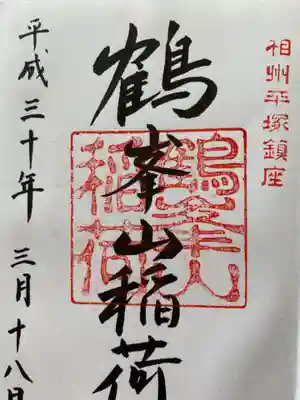 相州平塚鎮座
鶴峯山稲荷
鶴峯山
稲荷
平成三十年三月十八日